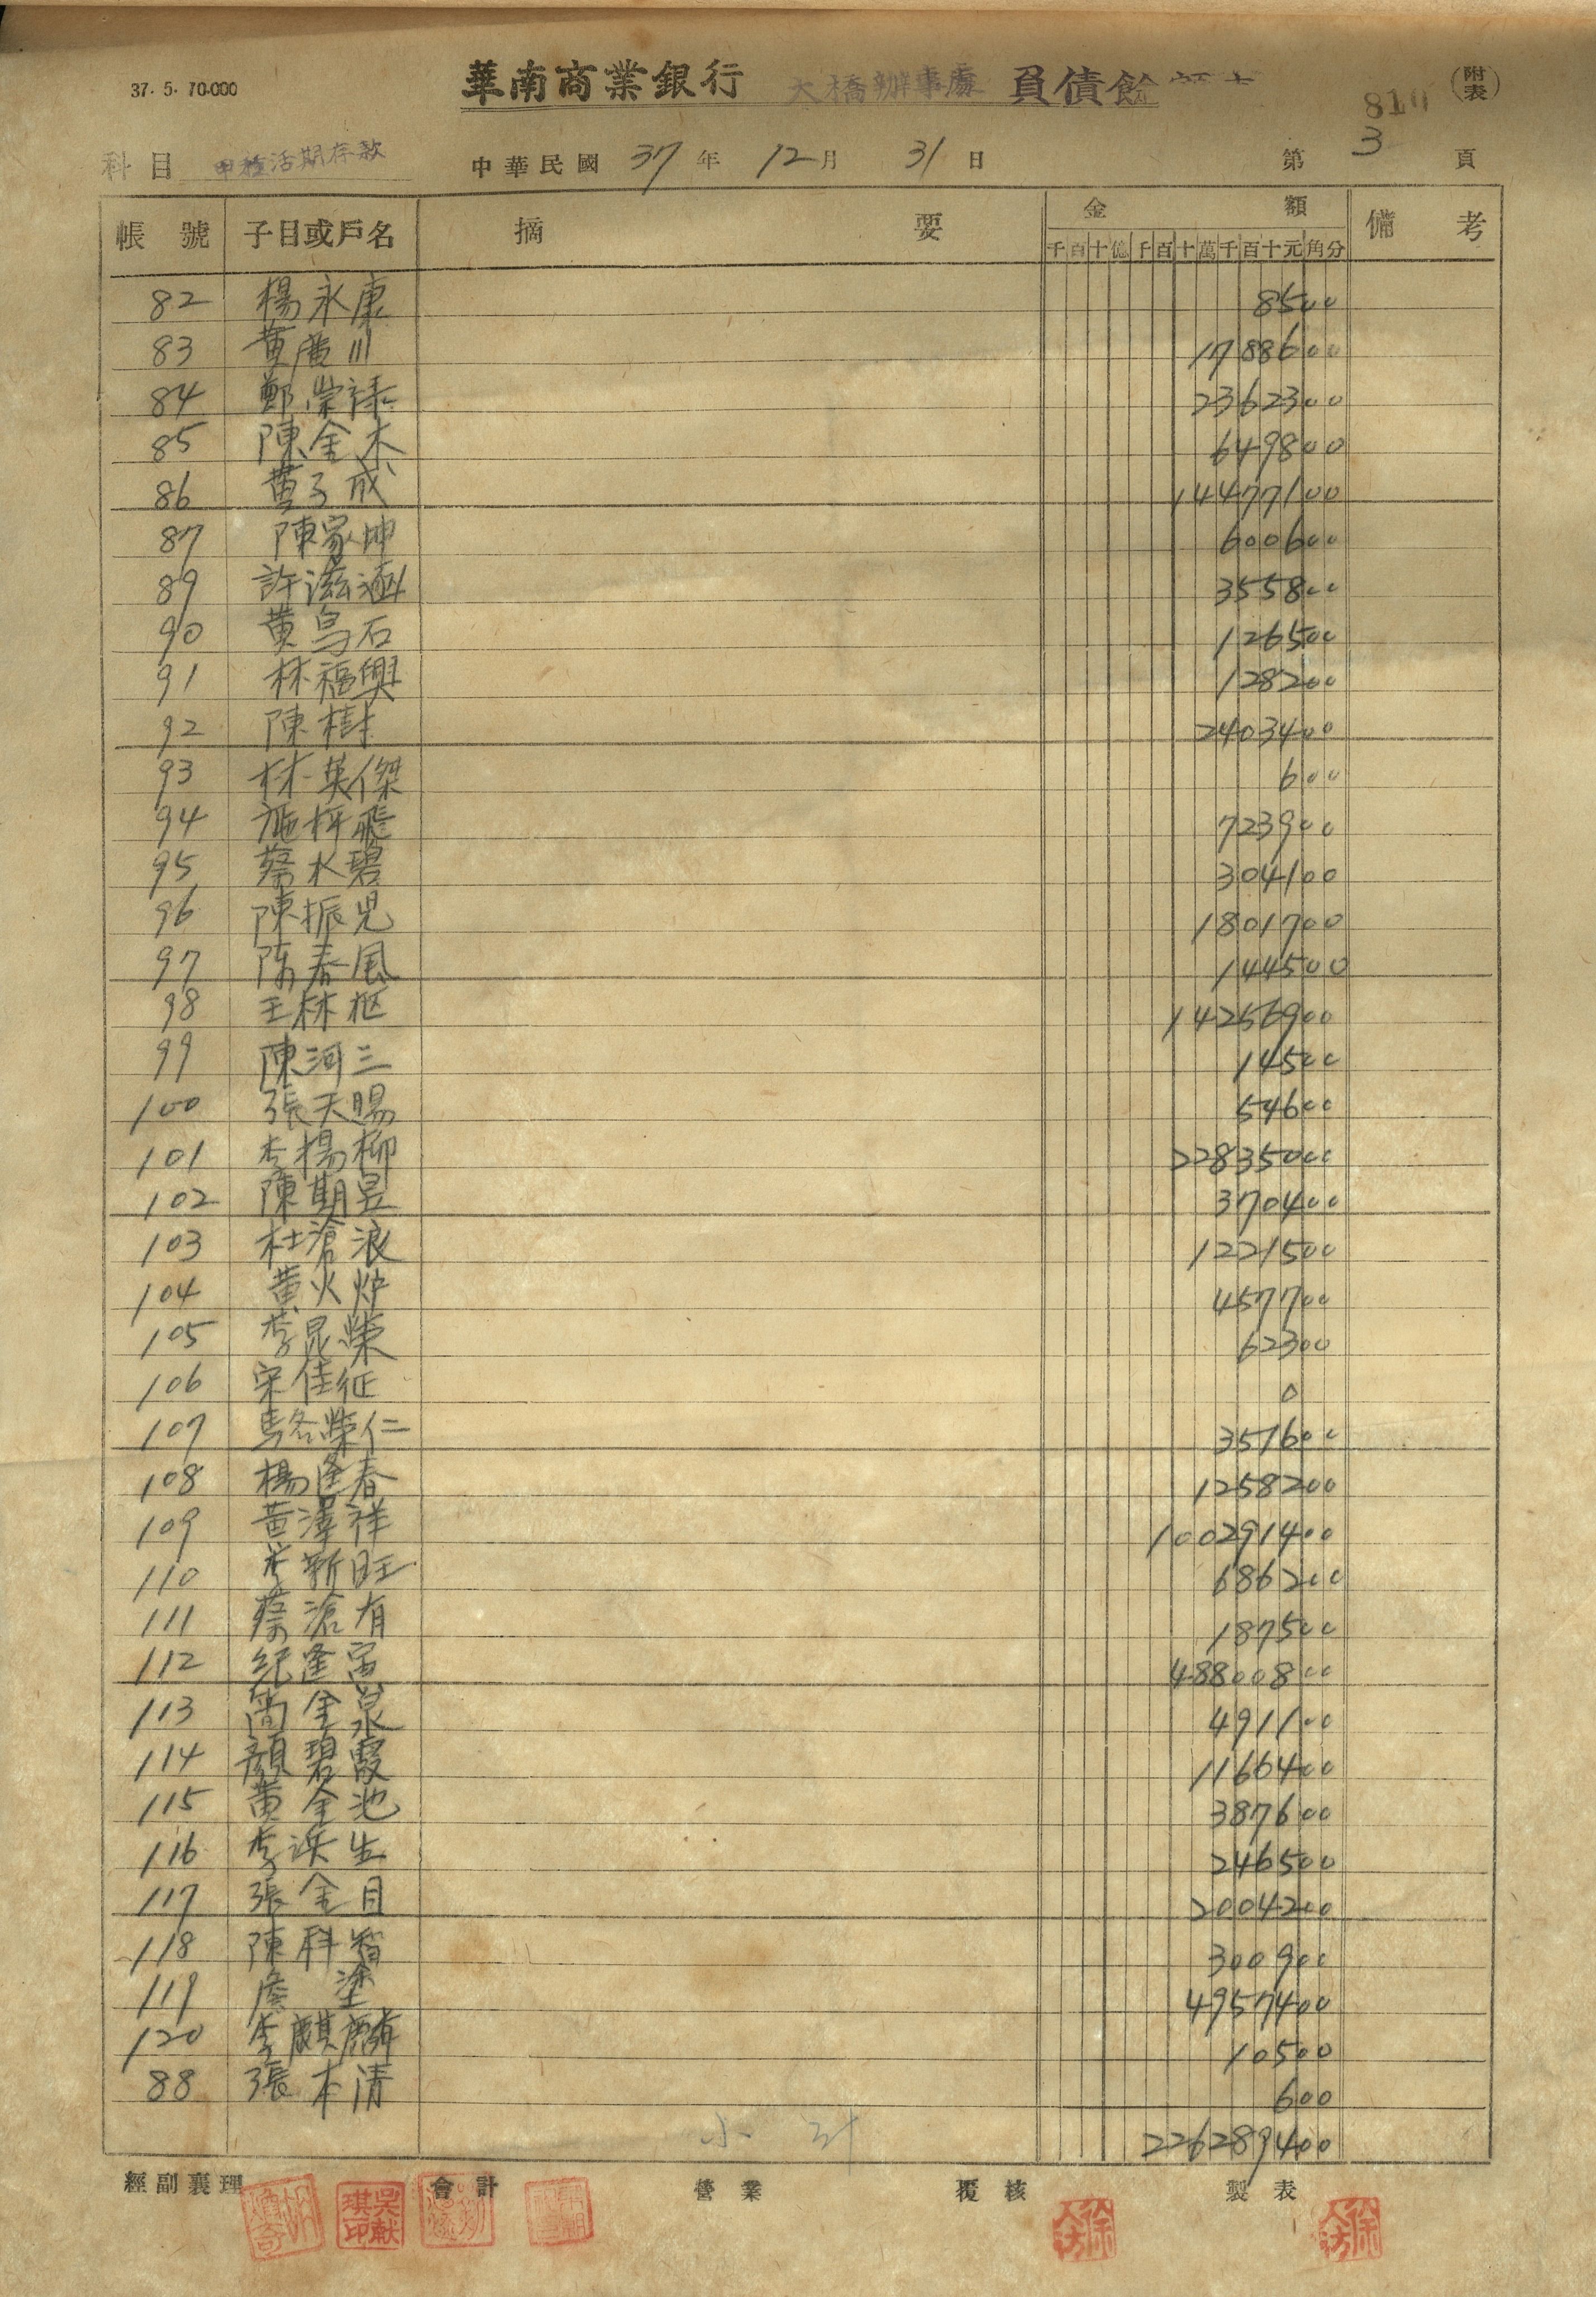 37. 5. 70.000
華南商業銀行 大橋辦事處 負債餘額表 (附表)
810
科目 甲種活期存款 中華民國 37 年 12 月 31 日 第 3 頁
帳號 子目或戶名 摘要 金額 備考
千百十億千百十萬千百十元角分
82 楊永康 8500
83 黃廣川 1788600
84 鄭崇祿 2362300
85 陳金木 649800
86 黃子成 14477100
87 陳家坤 600600
89 許滋 355800
90 黃烏石 126500
91 林福興 128200
92 陳樹 2403400
93 林英傑 600
94 施坪飛 723900
95 蔡水碧 304100
96 陳振兒 1801700
97 陳春風 144500
98 王林枢 14256900
99 陳河三 14500
100 張天賜 54600
101 李楊柳 22835000
102 陳期昱 370400
103 杜滄浪 1221500
104 黃火炉 457700
105 李晁榮 62300
106 宋佳征 0
107 駱榮仁 357600
108 楊逢春 1258200
109 黃澤祥 100291400
110 李新旺 686200
111 蔡滄有 187500
112 紀逢寅 48800800
113 简金泉 491100
114 顏碧霞 1166400
115 黃金池 387600
116 李浜生 246500
117 張金目 2004200
118 陳科智 300900
119 詹塗 4957400
120 李麒麟 10500
88 張本清 600
小計 226289400
經副襄理 會計 營業 覆核 製表
吳献琪印
徐人法 徐人法